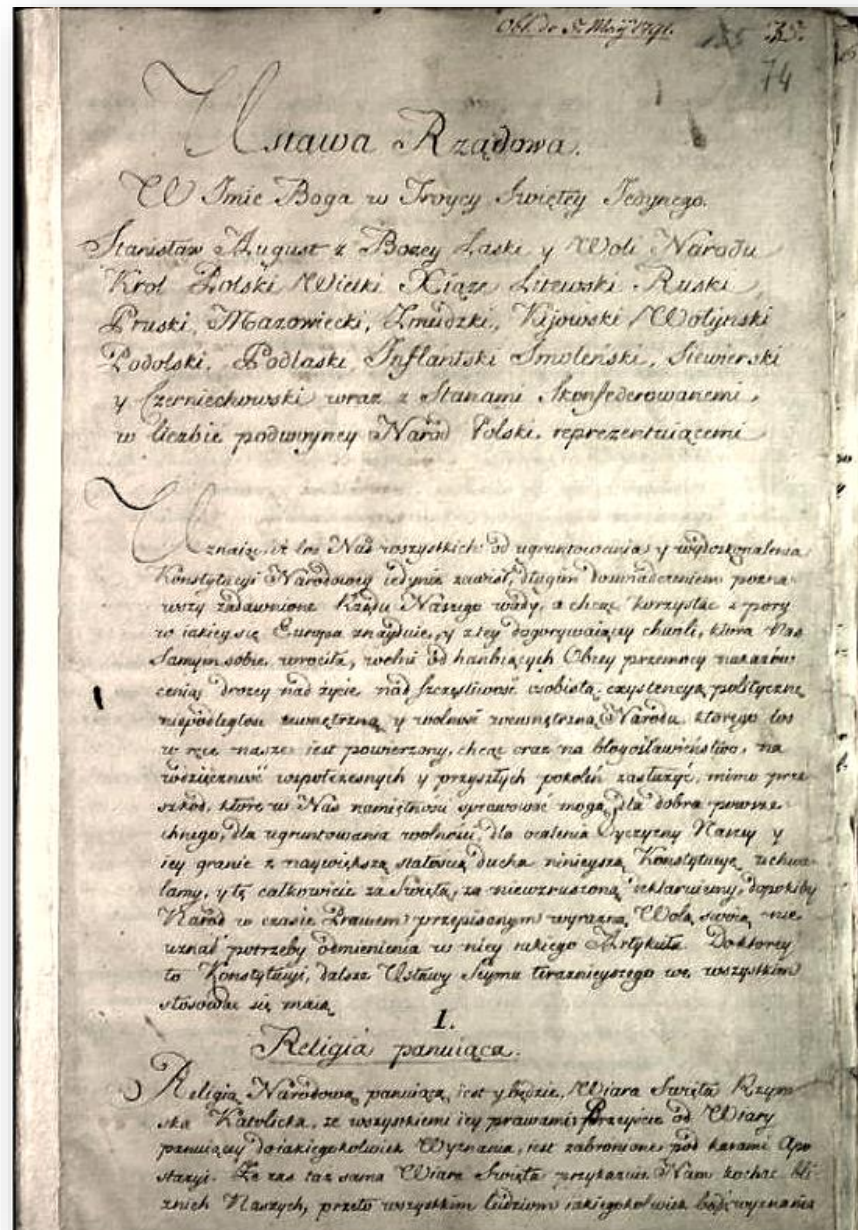 Obl. de 5. Maij 1791.
74
Ustawa Rządowa.
W Imie Boga w Troycy Swiętey Jedynego.
Stanisław August z Bozey Łaski y Woli Narodu
Krol Polski Wielki Xiąze Litewski Ruski
Pruski, Mazowiecki, Zmudzki, Kijowski Wołynski
Podolski, Podlaski Inflantski Smoleński, Siewierski
y Czerniechowski wraz z Stanami Skonfederowanemi,
w liczbie podwoyney Naród Polski reprezentuiącemi
Uznaiąc, iż los Nas wszystkich od ugruntowania y wydoskonalenia
Konstytucyi Narodowey iedynie zawisł, długim doswiadczeniem pozna-
wszy zadawnione Rządu Naszego wady, a chcąc korzystac z pory
w iakiey się Europa znayduie, y z tey dogorywaiącey chwili, ktora Nas
Samym sobie wrociła, wolni od hanbiących Obcey przemocy nakazów
ceniąc drozey nad życie, nad szczęsliwosć osobistą, exystencyą polityczną
niepodległosc zewnętrzną y wolność wewnętrzną Narodu, ktorego los
w ręce nasze iest powierzony, chcąc oraz na błogosławieństwo, na
wdzięczność wspołczesnych y przyszłych pokoleń zasłużyć, mimo prze-
szkód, które w Nas namiętnosci sprawować mogą, dla dobra powsze-
chnego, dla ugruntowania wolności, dla ocalenia Oyczyzny Naszey y
iey granic z naywiększą stałoscią ducha ninieyszą Konstytucyę uchwa-
lamy, y tę całkowicie za Swiętą, za niewzruszoną deklaruiemy, dopokiby
Naród w czasie Prawem przepisanym wyrazną Wolą swoią nie
uznał potrzeby odmienienia w niey iakiego Artykułu. Do ktorey
to Konstytucyi, dalsze Ustawy Seymu teraznieyszego we wszystkim
stosowac się maią.
I.
Religia panuiąca.
Religią Narodową panuiącą iest y będzie, Wiara Swięta Rzym-
ska Katolicka, ze wszystkiemi iey prawami; Przeyście od Wiary
panuiącey do iakiegokolwiek Wyznania, iest zabronione pod karami Apo-
stazyi. Ze zas taz sama Wiara Swięta przykazuie Nam kochac bli-
znich Naszych, przeto wszystkim ludziom iakiegokolwiek bądź wyznania